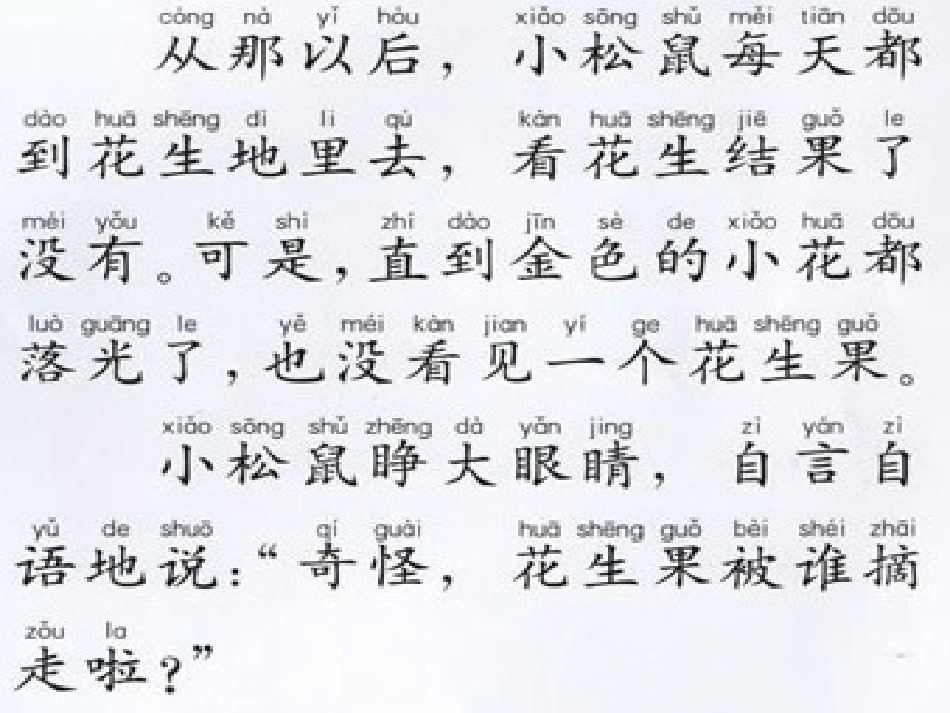 cóng nà yǐ hòu xiǎo sōng shǔ měi tiān dōu
从那以后，小松鼠每天都
dào huā shēng dì li qù kàn huā shēng jiē guǒ le
到花生地里去，看花生结果了
méi yǒu kě shì zhí dào jīn sè de xiǎo huā dōu
没有。可是，直到金色的小花都
luò guāng le yě méi kàn jian yí ge huā shēng guǒ
落光了，也没看见一个花生果。
xiǎo sōng shǔ zhēng dà yǎn jing zì yán zì
小松鼠睁大眼睛，自言自
yǔ de shuō qí guài huā shēng guǒ bèi shéi zhāi
语地说：“奇怪，花生果被谁摘
zǒu la
走啦？”